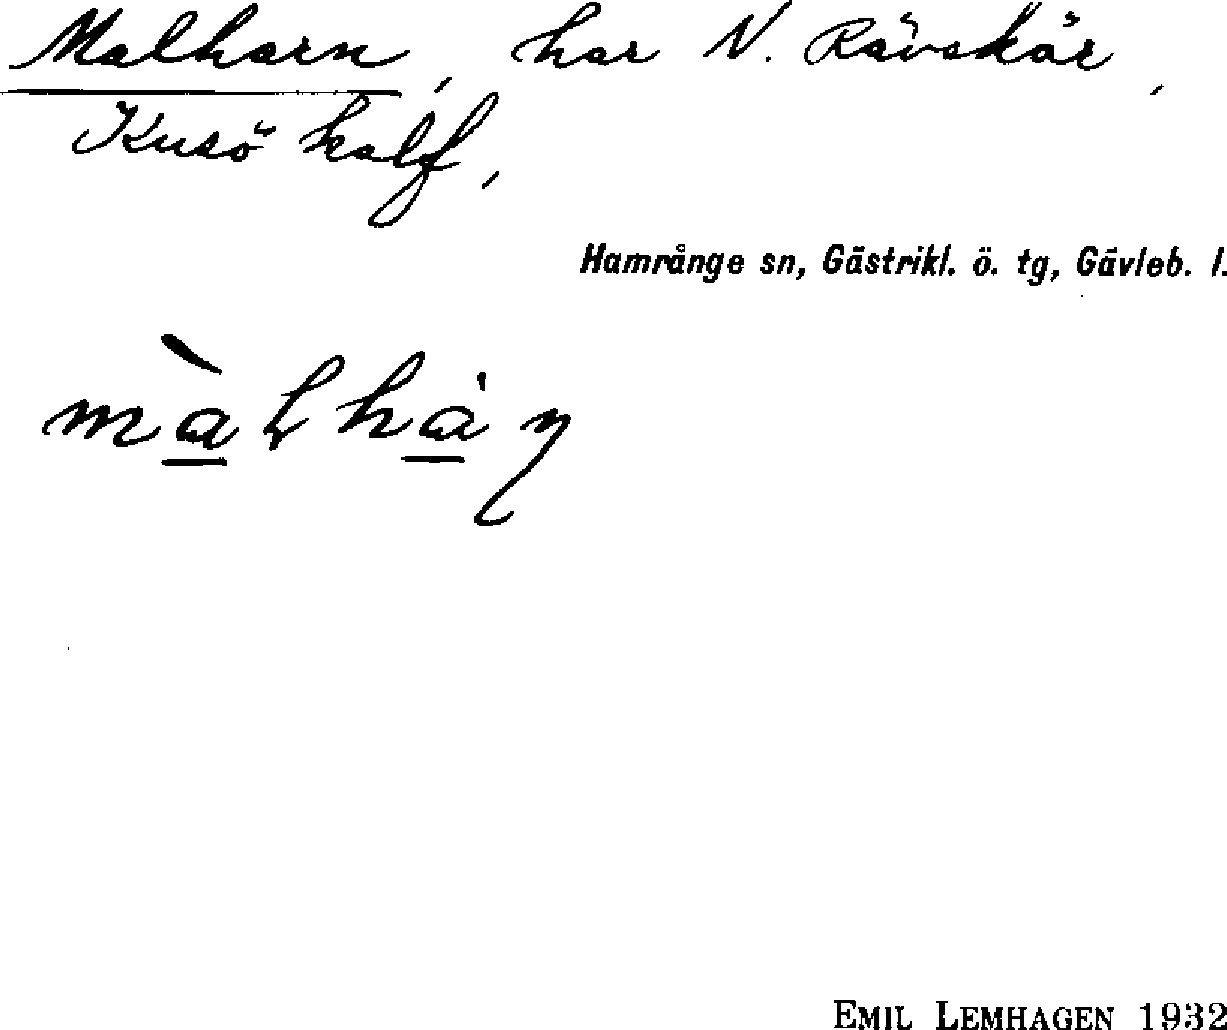 Malharn, har N. Rävskär,
Kusö kalf,
Hamrånge sn, Gästrikl. ö. tg, Gävleb. l.
EMIL LEMHAGEN 1932